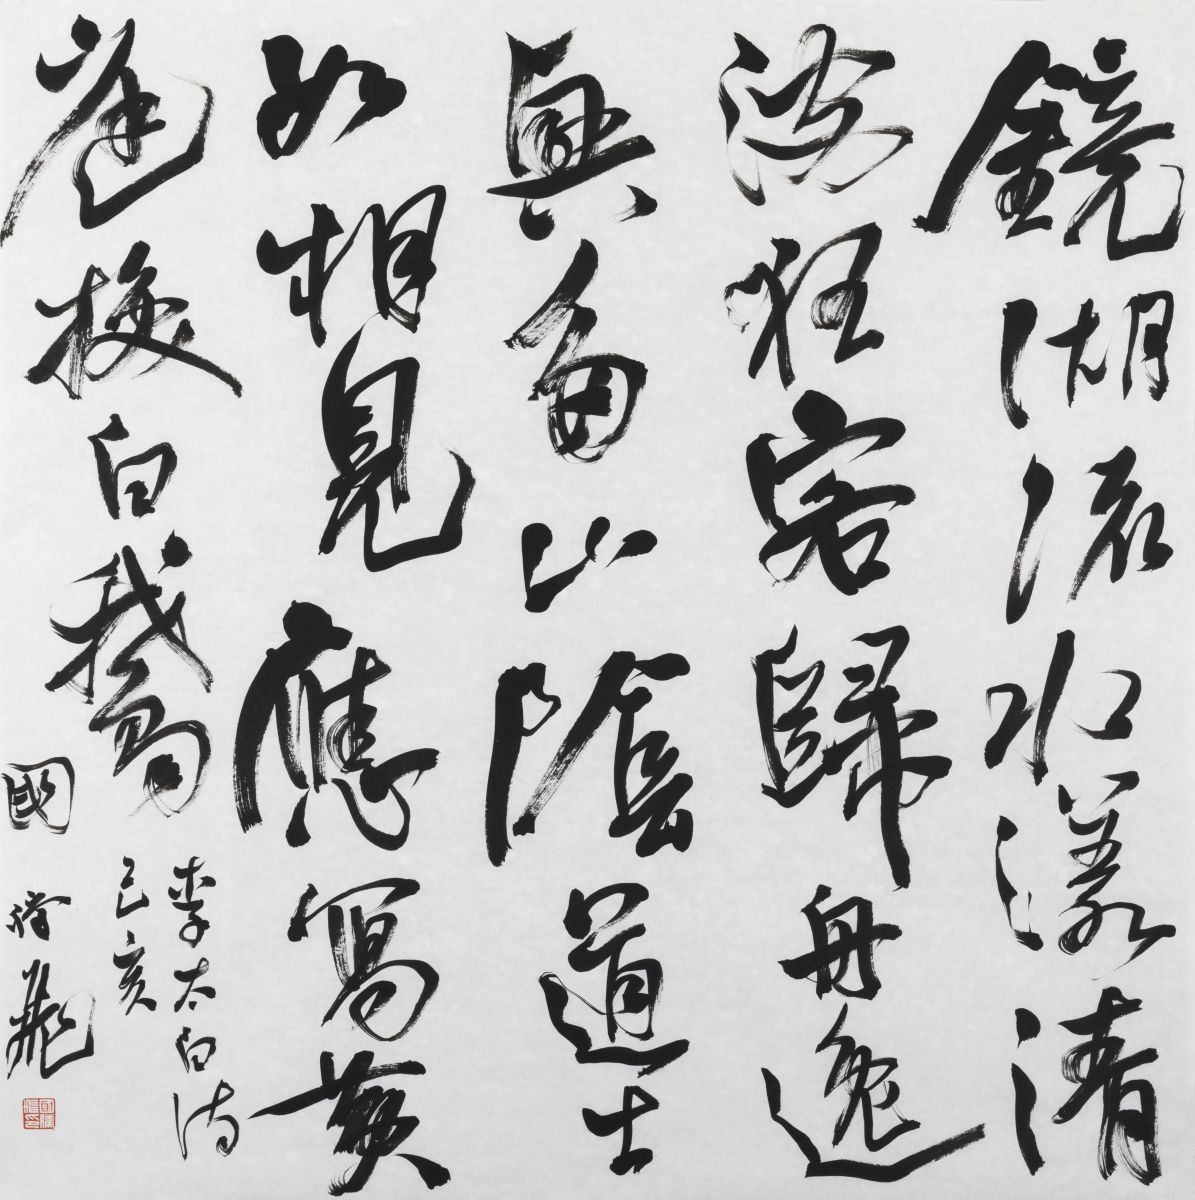 鏡湖流水漾清
波狂客歸舟逸
興多山陰道士
如相見應寫黃
庭換白鵝
李太白詩
己亥
國